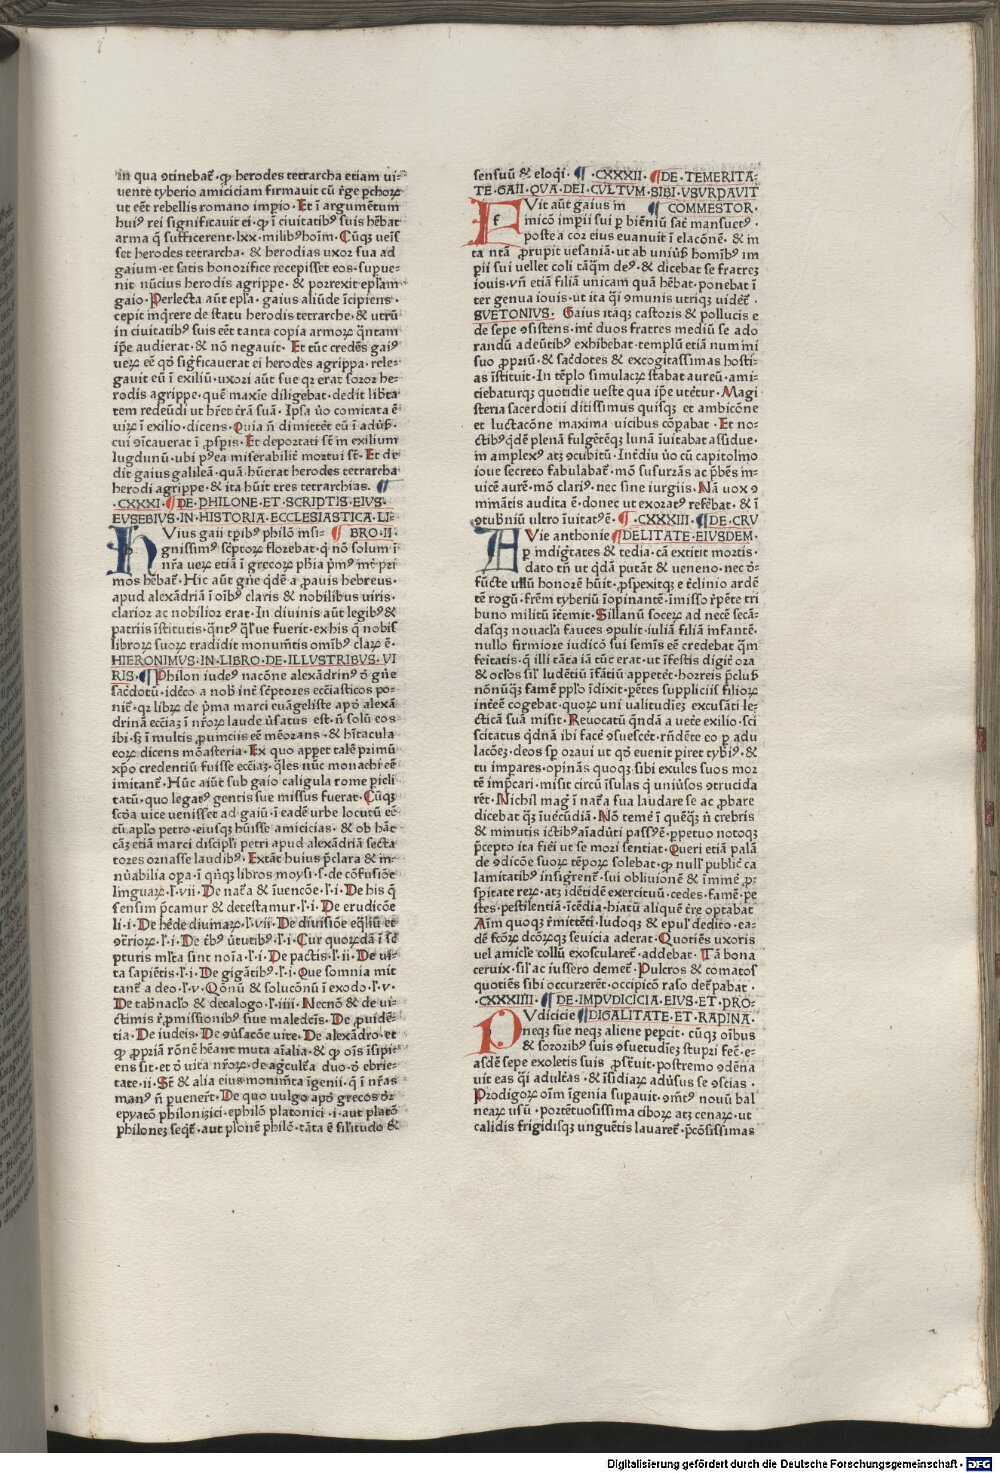 in qua ꝯtinebat᷑·ꝙ herodes tetrarcha etiam ui⸗
uente tyberio amiciciam firmauit cū r̄ge pthoꝝ
ut eēt rebellis romano impio·Et ī argumētum
huiꝰ rei significauit ei·ꝙ ī ciuitatibꝰ suis hēbat
arma q̄ sufficerent·lxx·milibꝰhoīm·Cūqꝫ ueīs
set herodes tetrarcha·& herodias uxor sua ad
gaium·et satis honorifice recepisset eos·supue⸗
nit nūcius herodis agrippe·& porrexit ep̄lam
gaio·Perlecta aūt ep̄la·gaius aliūde īcipiens·
cepit inq̄rere de statu herodis tetrarche·& utrū
in ciuitatibꝰ suis eēt tanta copia armoꝝ q̄ntam
ip̄e audierat·& nō negauit·Et tūc credēs gaiꝰ
ueꝝ eē qd̄ sig̅ficauerat ei herodes agrippa·rele⸗
gauit eū ī exiliū·uxori aūt sue qꝛ erat soror he⸗
rodis agrippe·quē maxīe diligebat·dedit lib̄ta
tem redeūdi ut hr̄et t̄rā suā·Ipsa ūo comitata ē
uiꝝ ī exilio·dicens·Quia n̄ dimittēt eū ī aduˀẜ·
cui ꝯīcauerat ī ꝓspis·Et deportati st̄ in exilium
lugdunū·ubi pˀea miserabilit᷑ mortui st̄·Et de
dit gaius galileā·quā hūerat herodes tetrarcha
herodi agrippe·& ita hūit tres tetrarchias·¶
·CXXXI·¶DE·PHILONE·ET·SCRIPTIS·EIVS·
EVSEBIVS·IN·HISTORIA·ECCLESIASTICA·LI⸗
HVius gaii tp̄ibꝰ philō insi⸗ ¶BRO·II·
gnissimꝰ sc̄ptoꝝ florebat·q̇ nō solum ī
nr̄a ueꝝ etiā ī grecoꝝ ph̄ia p̄mꝰ int᷑ pri
mos hēbat᷑·Hic aūt gn̄e qdē a ꝓauis hebreus·
apud alexādriā ī oībꝰ claris & nobilibus uiris·
clarior ac nobilior erat·In diuinis aūt legibꝰ&
patriis īstitutis·q̄ntꝰ q̄lˀue fuerit·ex his q̄ nobis
libroꝝ suoꝝ tradidit monum̄tis omībꝰ claꝝ ē·
HIERONIMVS·IN·LIBRO·DE·ILLVSTRIBVS·VI
RIS·¶Philon iudeꝰ nacōne alexādrinꝰ ď gn̄e
sac̄dotū·idc̄co a nob̄ int᷑ sc̄ptores ecc̄iasticos po⸗
nit᷑·qꝛ libꝝ de p̄ma marci euāgeliste apď alexā
drinā ecc̄iaꝫ ī nr̄oꝝ laude u̓satus est·n̄ solū eos
ibi·sꝫ ī multis ꝓuinciis eē mēorans·& hītacula
eoꝝ dicens mōasteria·Ex quo appet talē primū
xp̄o credentiū fuisse ecc̄iaꝫ·q̄les nūc monachi eē
imitant᷑·Hūc aiūt sub gaio caligula rome picli
tatū·quo legatꝰ gentis sue missus fuerat·Cūqꝫ
scd̄a uice uenisset ad gaiū·ī eadē urbe locutū eē
cū apl̄o petro·eiusqꝫ hūisse amicicias·& ob hāc
cāꝫ etiā marci discipl̄i petri apud alexādriā secta
tores ornasse laudibꝰ·Extāt huius p̄clara & in⸗
nūabilia opa·ī qn̄qꝫ libros moysi·s·de cōfusiōe
linguaꝝ·l̓·vii·De nat̄a & īuencōe·l̓·i·De his q̄
sensim p̄camur & detestamur·l̓·i·De erudicōe
li·i·De hēde diuinaꝝ·l̓·vii·De diuisiōe eq̄liū et
ꝯt̄rioꝝ·l̓·i·De t̄bꝰ u̓tutibꝰ·l̓·i·Cur quordā ī sc̄
pturis ml̄ta sint noīa·l̓·i·De pactis·l̓·ii·De ui⸗
ta sapiētis·l̓·i·De gigātibꝰ·l̓·i·Que somnia mit
tant᷑ a deo·l̓·v·Qōnū & solucōnū ī exodo·l̓·v·
De tab̄naclo & decalogo·l̓·iiii·Necnō & de ui⸗
ctimis r̓pmissionibꝰ siue maledcīs·De ꝓuidē⸗
tia·De iudeis·De ꝯu̓sacōe uite·De alexādro·et
ꝙ ꝓpriā rōnē hēant muta aīalia·& ꝙ oīs īsipi⸗
ens sit·et ď uita nr̄oꝝ·de agc̄ult̄a duo·ď ebrie⸗
tate·ii·St̄ & alia eius monim̄ta īgenii·q̄ ī nr̄as
manꝰ n̄ puener̄t·De quo uulgo apď grecos ďr
epyatō philonizici·ephilō platonici·i·aut platō
philoneꝫ seqt᷑·aut plōnē philō·tāta ē sil̓itudo &
sensuū & eloqi·¶·CXXXII·¶DE·TEMERITA⸗
TE·GAII·QVA·DEI·CVLTVM·SIBI·VSVRPAVIT
FVit aūt gaius in ¶COMMESTOR·
inicō imp̄ii sui p biēniū sat᷑ mansuetꝰ·
postea cor eius euanuit ī elacōnē·& in
ta ntā ꝓrupit uesaniā·ut ab uniu̓ẜ homībꝰ im
p̄ii sui uellet coli tāq̄m deꝰ·& dicebat se fratreꝫ
iouis·vn̄ etiā filiā unicam quā hēbat·ponebat ī
ter genua iouis·ut ita q̄i ꝯmunis utriqꝫ uidēt᷑·
SVETONIVS·Gaius itaqꝫ castoris & pollucis e
de sepe ꝯsistens·int᷑ duos fratres mediū se ado
randū adeūtibꝰ exhibebat·templū etiā numini
suo ꝓpriū·& sac̄dotes & excogitassimas hosti⸗
as īstituit·In tēplo simulacꝝ stabat aureū·ami⸗
ciebaturqꝫ quotidie ueste qua ip̄e utētur·Magi
steria sacerdotii ditissimus quisqꝫ et ambicōne
et luctacōne maxima uicibus cōpabat·Et no⸗
ctibꝰq̇dē plenā fulgētēqꝫ lunā īuitabat assidue·
in amplexꝰ atqꝫ ꝯcubitū·Int̄diu ūo cū capitolino
ioue secreto fabulabat᷑·mō susurrās ac p̄bēs in⸗
uicē aurē·mō clariꝰ·nec sine iurgiis·Nā uox ꝯ
minātis audita ē·donec ut exorat᷑ refēbat·& ī
ꝯtubniū ultro īuitatꝰē·¶·CXXXIII·¶DE·CRV
AVie anthonie ¶DELITATE·EIVSDEM·
p indig̅tates & tedia·cā extitit mortis·
dato tn̄ ut qdā putāt & ueneno·nec d̄⸗
fūcte ullū honorē hūit·ꝓspexitqꝫ e tc̄linio ardē
tē rogū·fr̄em tyberiū īopinantē·īmisso r̓pēte tri
buno militū īt̄emit·Sillanū soceꝝ ad necē secā⸗
dasqꝫ nouacl̄a fauces ꝯpulit·iuliā filiā infantē·
nullo firmiore iudicō sui semīs eē credebat q̄m
feītatis·q̄ illi tāta iā tūc erat·ut īfestis digit᷑ ora
& oclos sil̓ ludētiū īfātiū appetēt·horreis p̄clusꝰ
nōnūq̄ꝫ famē pplo īdixit·p̄ētes suppliciis filioꝝ
int̄eē cogebat·quoꝝ uni ualitudieꝫ excusāti le⸗
cticā suā misit·Reuocatū q̄ndā a uet̄e exilio·sci
scitatus q̇dnā ibi facē ꝯsuescēt·rn̄dēte eo p adu
lacōeꝫ·deos sp orauī ut qd̄ euenit piret tyb̄iꝰ·&
tu impares·opināˢ quoqꝫ sibi exules suos mor
tē imp̄cari·misit circū īsulas q̇ uniu̓sos ꝯtrucida
rēt·Nichil mag̅ ī nat̄a sua laudare se ac ꝓbare
dicebat qꝫ īuecūdiā·Nō temē ī quēqꝫ n̄ crebris
& minutis ictibꝰaīaduti passꝰē·ppetuo notoqꝫ
p̄cepto ita fīei ut se mori sentiat·Queri etiā palā
de ꝯdicōe suoꝝ tēpoꝝ solebat·ꝙ null̓ public̄ ca
lamitatibꝰ insigrent᷑·sui obliuionē & īmīnē ꝓ⸗
spitate reꝝ·atqꝫ idētidē exercituū·cedes·famē·pe
stes·pestilentiā·īcēdia·hiatū aliquē t̄re optabat
Aīm quoqꝫ r̓mittēti·ludoqꝫ & epul̓ dedito·ea⸗
dē fcōꝝ dcōrqꝫ seuicia aderat·Quotiēs uxoris
uel amicl̄e collū exosculareť·addebat·Tā bona
ceruix·sil̓ ac iussero demet᷑·Pulcros & comatos
quotiēs sibi occurrerēt·occipicō raso det̓pabat·
·CXXXIIII·¶DE·IMPVDICICIA·EIVS·ET·PRO⸗
PVdicicie ¶DIGALITATE·ET·RAPINA·
neqꝫ sue neqꝫ aliene pepcit·cūqꝫ oībus
& sororibꝰ suis ꝯsuetudīeꝫ stupri fec̄·e⸗
asdē sepe exoletis suis ꝓst̄uit·postremo ꝯdēna
uit eas q̄i adult̄as·& īsidiaꝝ adu̓sus se ꝯscias·
Prodigoꝝ oīm īgenia supauit·ꝯm̄tꝰ nouū bal
neaꝝ usū·portētuosissima ciboꝝ atqꝫ cenaꝝ·ut
calidis frigidisqꝫ unguētis lauaret᷑·p̄cōsissimas
Digitalisierung gefördert durch die Deutsche Forschungsgemeinschaft - DFG